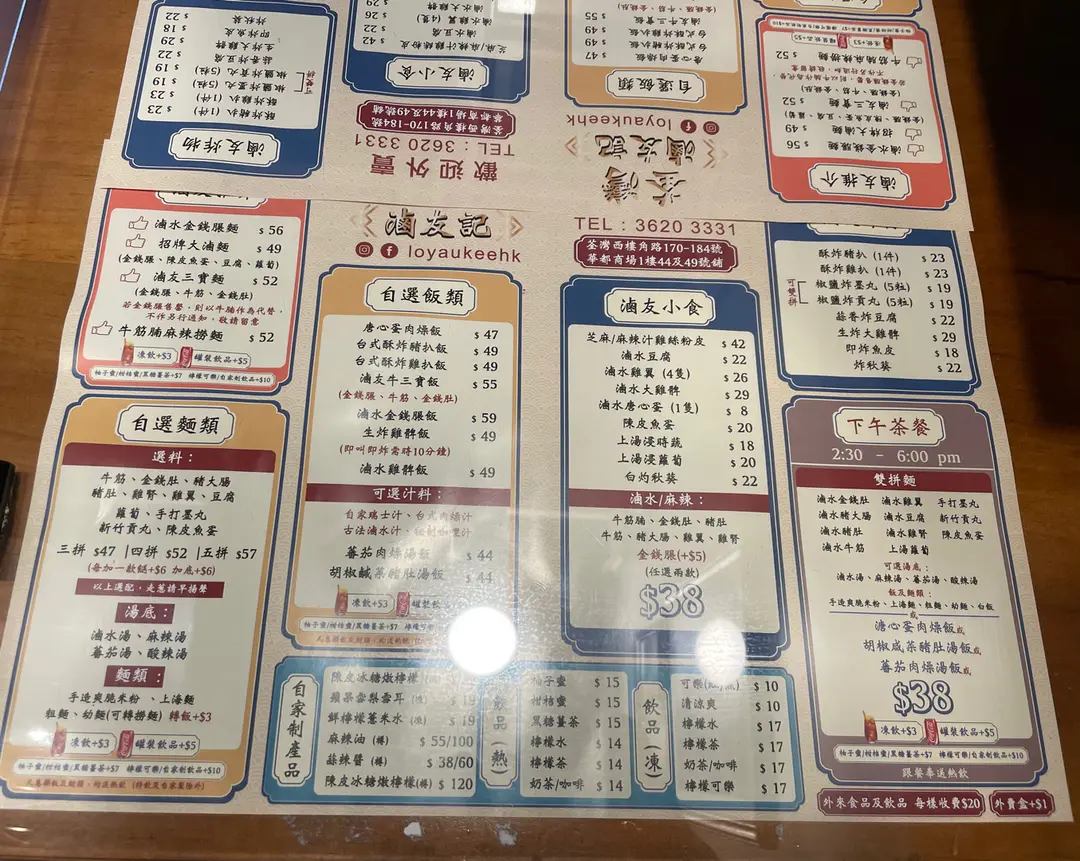 滷友記
loyaukeehk
TEL : 3620 3331
荃灣西樓角路170-184號
華都商場1樓44及49號舖
滷水金錢腒麵 $ 56
招牌大滷麵 $ 49
(金錢腒、陳皮魚蛋、豆腐、蘿蔔)
滷友三寶麵 $ 52
(金錢腒、牛筋、金錢肚)
若金錢腒售罄，則以牛腩作為代替，
不作另行通知，敬請留意
牛筋腩麻辣撈麵 $ 52
凍飲+$3 罐裝飲品+$5
柚子蜜/柑桔蜜/黑糖薑茶+$7 檸檬可樂/自家制飲品+$10
自選麵類
選料：
牛筋、金錢肚、豬大腸
豬肚、雞腎、雞翼、豆腐
蘿蔔、手打墨丸
新竹貢丸、陳皮魚蛋
三拼 $47 |四拼 $52 |五拼 $57
(每加一款餸+$6 加底+$6)
以上選配，走蔥請早揚聲
湯底：
滷水湯、麻辣湯
蕃茄湯、酸辣湯
麵類：
手造爽脆米粉 、上海麵
粗麵、幼麵(可轉撈麵) 轉飯+$3
凍飲+$3 罐裝飲品+$5
柚子蜜/柑桔蜜/黑糖薑茶+$7 檸檬可樂/自家制飲品+$10
自選飯類
唐心蛋肉燥飯 $ 47
台式酥炸豬扒飯 $ 49
台式酥炸雞扒飯 $ 49
滷友牛三寶飯 $ 55
(金錢腒、牛筋、金錢肚)
滷水金錢腒飯 $ 59
生炸雞髀飯 $ 49
(即叫即炸需時10分鐘)
滷水雞髀飯 $ 49
可選汁料：
自家瑞士汁、台式肉燥汁
古法滷水汁、
蕃茄肉燥湯飯 $ 44
胡椒鹹菜豬肚湯飯 $ 44
凍飲+$3 罐裝飲
滷友小食
芝麻/麻辣汁雞絲粉皮 $ 42
滷水豆腐 $ 22
滷水雞翼 (4隻) $ 26
滷水大雞髀 $ 29
滷水唐心蛋 (1隻) $ 8
陳皮魚蛋 $ 20
上湯浸時蔬 $ 18
上湯浸蘿蔔 $ 20
白灼秋葵 $ 22
滷水/麻辣：
牛筋腩、金錢肚、豬肚
牛筋、豬大腸、雞翼、雞腎
金錢腒(+$5)
(任選兩款)
$38
酥炸豬扒 (1件) $ 23
酥炸雞扒 (1件) $ 23
可雙拼
椒鹽炸墨丸 (5粒) $ 19
椒鹽炸貢丸 (5粒) $ 19
蒜香炸豆腐 $ 22
生炸大雞髀 $ 29
即炸魚皮 $ 18
炸秋葵 $ 22
下午茶餐
2:30 - 6:00 pm
雙拼麵
滷水金錢肚 滷水雞翼 手打墨丸
滷水豬大腸 滷水豆腐 新竹貢丸
滷水豬肚 滷水雞腎 陳皮魚蛋
滷水牛筋 上湯蘿蔔
可選湯底：
滷水湯、麻辣湯、蕃茄湯、酸辣湯
飯及麵類：
手造爽脆米粉、上海麵、粗麵、幼麵、白飯
或
溏心蛋肉燥飯或
胡椒咸菜豬肚湯飯或
蕃茄肉燥湯飯
$38
凍飲+$3 罐裝飲品+$5
柚子蜜/柑桔蜜/黑糖薑茶+$7 檸檬可樂/自家制飲品+$10
跟餐奉送熱飲
自家制產品
陳皮冰糖燉檸檬
蘋果雪梨雪耳 $ 19
鮮檸檬薏米水 $ 19
麻辣油 (樽) $ 55/100
蒜辣醬 (樽) $ 38/60
陳皮冰糖燉檸檬(樽) $ 120
飲品(熱)
柚子蜜 $ 15
柑桔蜜 $ 15
黑糖薑茶 $ 15
檸檬水 $ 14
檸檬茶 $ 14
奶茶/咖啡 $ 14
飲品(凍)
可樂 $ 10
清涼爽 $ 10
檸檬水 $ 17
檸檬茶 $ 17
奶茶/咖啡 $ 17
檸檬可樂 $ 17
外來食品及飲品 每樣收費$20
外賣盒+$1
滷友推介
滷水金錢腒麵 $ 56
招牌大滷麵 $ 49
(金錢腒、陳皮魚蛋、豆腐、蘿蔔)
滷友三寶麵 $ 52
(金錢腒、牛筋、金錢肚)
若金錢腒售罄，則以牛腩作為代替，
不作另行通知，敬請留意
牛筋腩麻辣撈麵 $ 52
凍飲+$3 罐裝飲品+$5
荃灣
滷友記
loyaukeehk
自選飯類
唐心蛋肉燥飯 $ 47
台式酥炸豬扒飯 $ 49
台式酥炸雞扒飯 $ 49
滷友牛三寶飯 $ 55
(金錢腒、牛筋、金錢肚)
歡迎外賣
TEL : 3620 3331
荃灣西樓角路170-184號
華都商場1樓44及49號舖
滷友小食
芝麻/麻辣汁雞絲粉皮 $ 42
滷水豆腐 $ 22
滷水雞翼 (4隻) $ 26
滷水大雞髀 $ 29
滷友炸物
酥炸豬扒 (1件) $ 23
酥炸雞扒 (1件) $ 23
可雙拼
椒鹽炸墨丸 (5粒) $ 19
椒鹽炸貢丸 (5粒) $ 19
蒜香炸豆腐 $ 22
生炸大雞髀 $ 29
即炸魚皮 $ 18
炸秋葵 $ 22